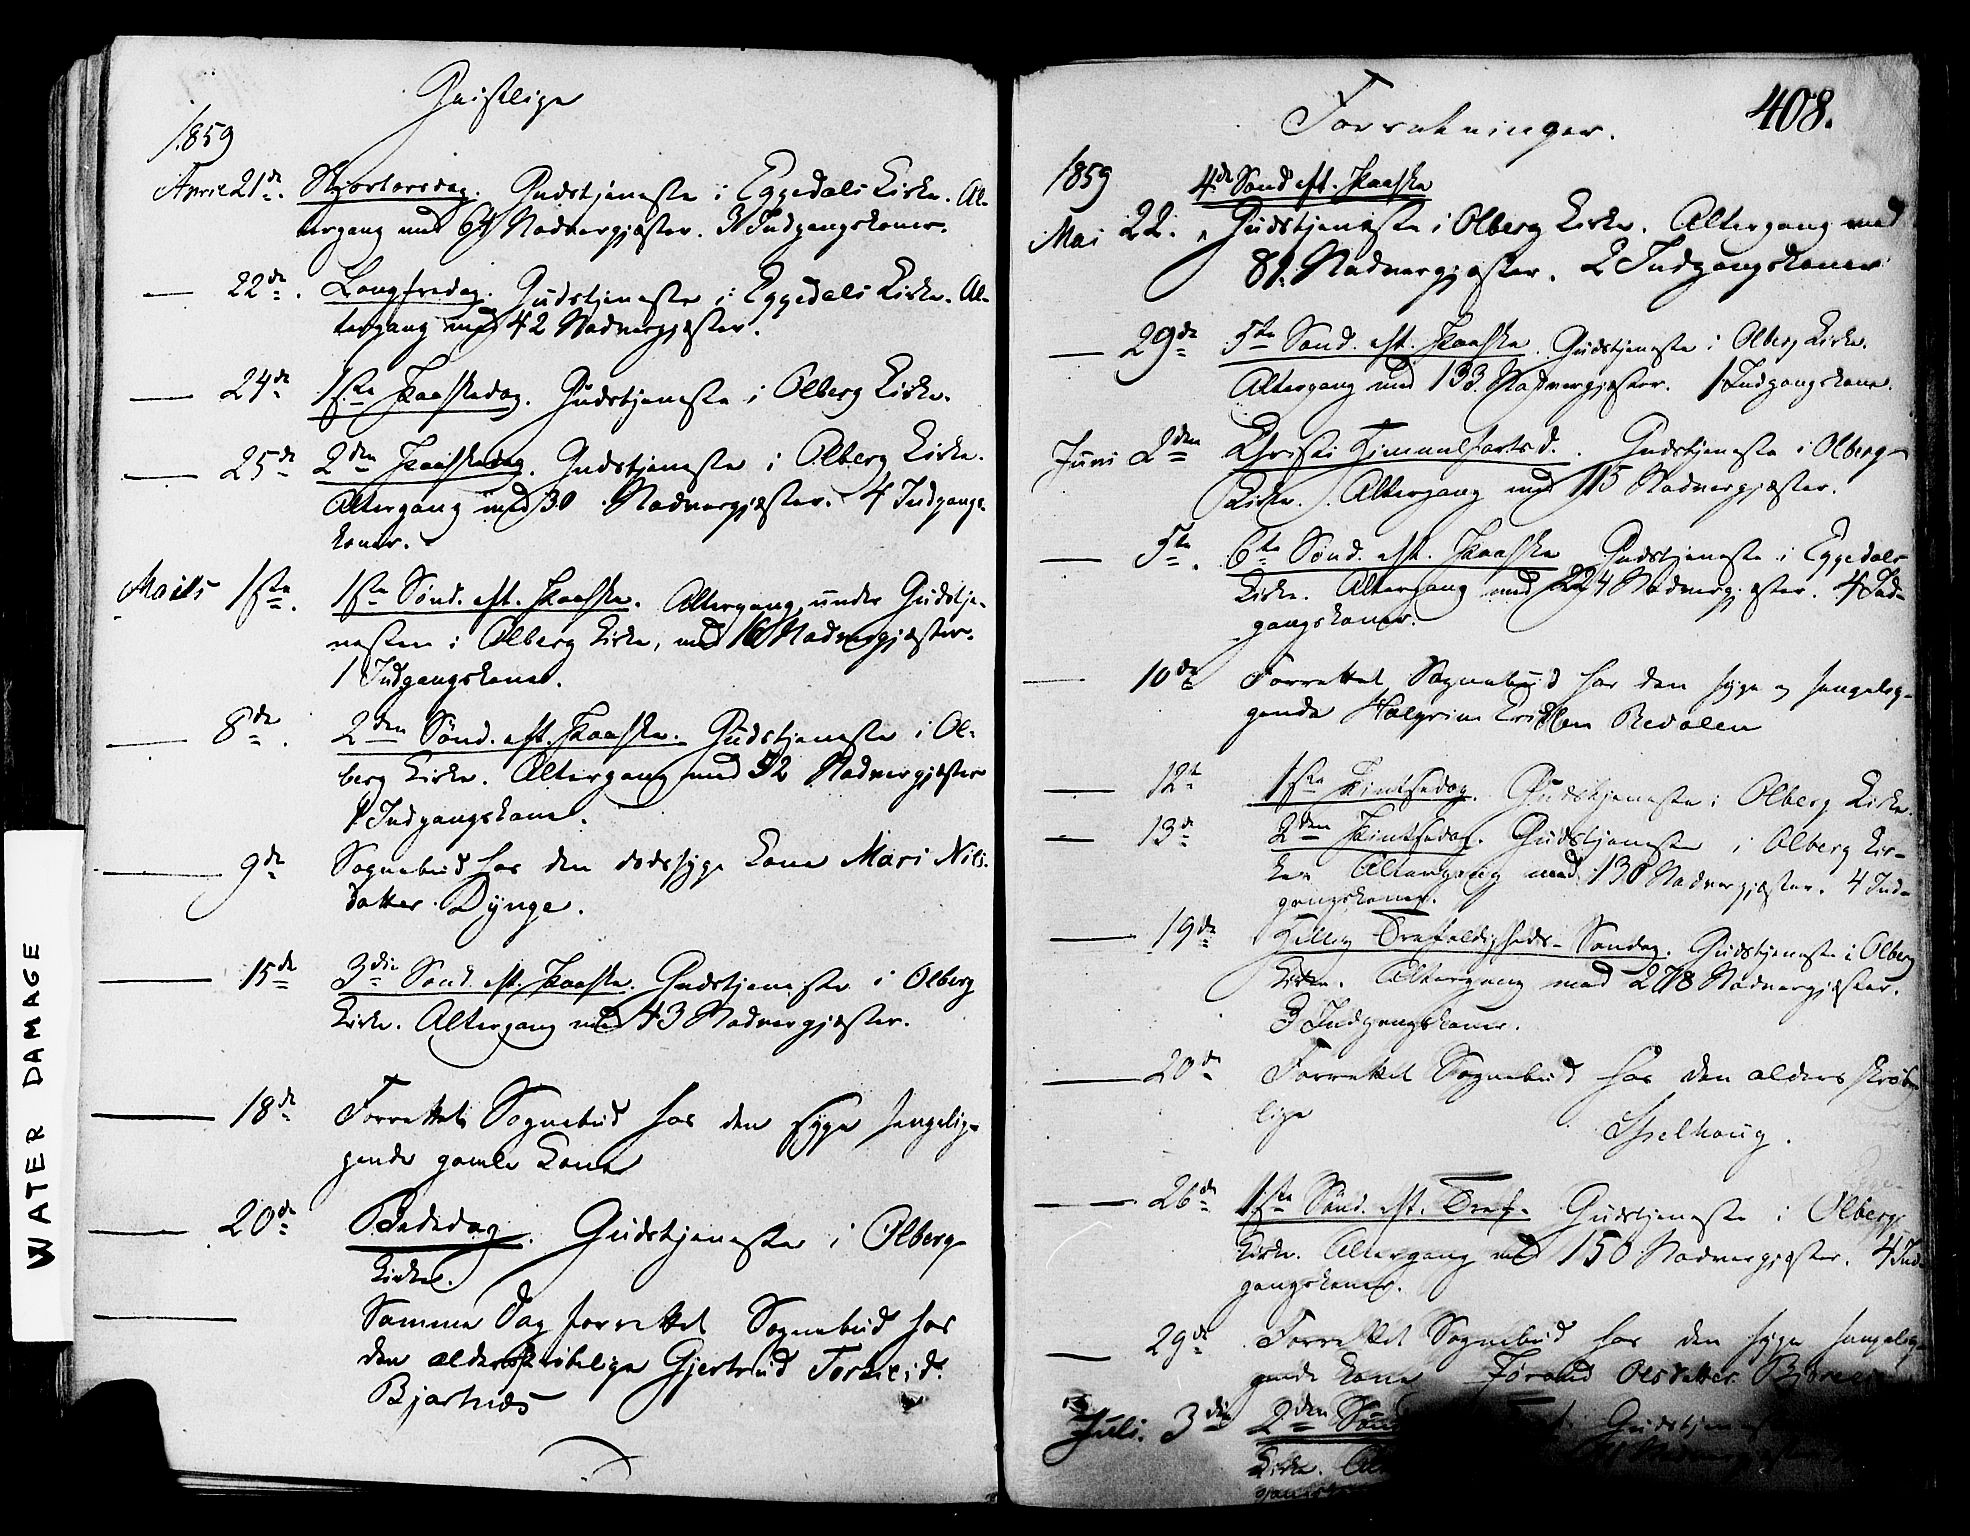 Geistlige
1859
April 21de. Skjærtorsdag. Gudstjeneste i Eggedals Kirke. Al-
tergang med 64 Nadvergjæster. 3 Indgangskoner.
— 22de. Langfredag. Gudstjeneste i Eggedals Kirke. Al-
tergang med 42 Nadvergjæster.
— 24de 1ste Paaskedag. Gudstjeneste i Olberg Kirke.
— 25de 2den Paaskedag. Gudstjeneste i Olberg Kirke.
Altergang med 30 Nadvergjæster. 4 Indgangs-
koner.
Maits 1ste. 1ste Sønd. eft. Paaske. Altergang under Gudstje-
nesten i Olberg Kirke, med 16 Nadvergjæster.
1 Indgangskone.
— 8de. 2den Sønd. eft. Paaske. Gudstjeneste i Ol-
berg Kirke. Altergang med 52 Nadvergjæster
1 Indgangskone.
— 9de Sognebud hos den dødssyge Kone Mari Nils-
datter Dynge.
— 15de 3die Sønd. eft. Paaske. Gudstjeneste i Olberg
Kirke. Altergang med 43 Nadvergjæster.
— 18de Forrettet Sognebud hos den syge sengelig-
gende gamle Kone
— 20de Bededag. Gudstjeneste i Olberg
Kirke.
— Samme Dag forrettet Sognebud hos
den alderskrøbelige Gjertrud
Bjørnæs
Forretninger.
408.
1859 4de Sønd eft. Paaske
Mai 22. Gudstjeneste i Olberg Kirke. Altergang med
81 Nadvergjæster. 2 Indgangskoner
— 29de 5te Sønd. eft. Paaske. Gudstjeneste i Olberg Kirke.
Altergang med 133 Nadvergjæster. 1 Indgangskone.
Juni 2den Christi Himmelfartsd. Gudstjeneste i Olberg
Kirke. Altergang med 115 Nadvergjæster.
— 5te. 6te Sønd. eft. Paaske Gudstjeneste i Eggedals
Kirke. Altergang med 224 Nadvergjæster. 4 Ind-
gangskoner.
— 10de Forrettet Sognebud hos den syge og sengelig-
gende Halgrim Eriksen Redalen
— 12te 1ste Pintsedag. Gudstjeneste i Olberg Kirke.
— 13de 2den Pintsedag. Gudstjeneste i Olberg Kir-
ke. Altergang med 130 Nadvergjæster. 4 Ind-
gangskoner.
— 19de Hellig Trefoldigheds-Søndag. Gudstjeneste i Olberg
Kirke. Altergang med 278 Nadvergjæster.
3 Indgangskoner.
— 20de Forrettet Sognebud hos den alders skrøbe-
lige
.
— 26de 1ste Sønd. eft. Tref. Gudstjeneste i Olberg
Kirke. Altergang med 150 Nadvergjæster. 4 Ind-
gangskoner.
— 29de Forrettet Sognebud hos den syge sengelig-
gende Kone Jørand Olsdatter
Juli. 3die 2den Sønd Gudstjeneste
Kirke. Nadvergjæster
WATER DAMAGE